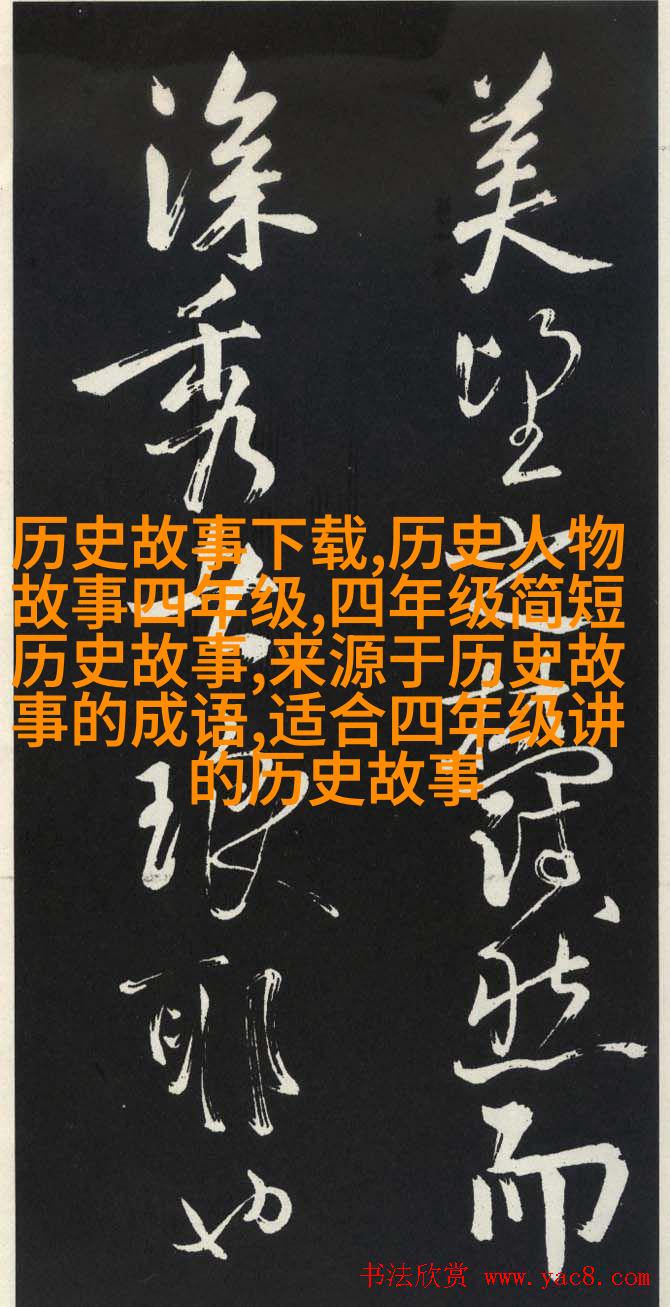 美望之蔚然而
深秀者琅耶也
历史故事下载,历史人物
故事四年级,四年级简短
历史故事,来源于历史故
事的成语,适合四年级讲
的历史故事
书法欣赏 www.yac8.com